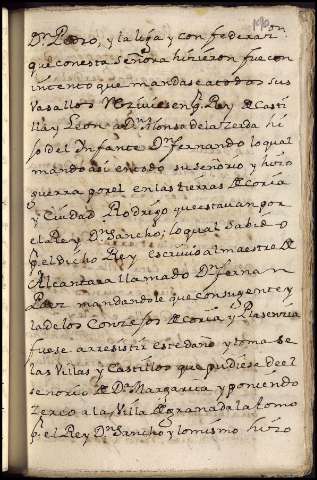 Dn Pedro, y la liga y confederaçion
que con esta Señora hizieron fue con
intento que mandase a todos sus
Vasallos reziviesen pr Rey de Casti
lla y Leon a Dn Alonso de la Zerda hi
jo del Infante Dn fernando lo qual
mando asi en todo su señorio y hizo
guerra por el en las tierras de Coria
y Ciudad Rodrigo que estavan por
el Rey Dn Sancho; lo qual sabido
pr el dicho Rey escrivio al maestre de
Alcantara llamado Dn fernan
Paez mandandole que con su gente y
la de los Conzejos de Coria y Plasenzia
fuese a rresistir este daño y tomase
las Villas y Castillos que pudiese de el
señorio de Da Margarita y poniendo
zerco a la Villa de granada la tomo
pr el Rey Dn Sancho y lo mismo hizo